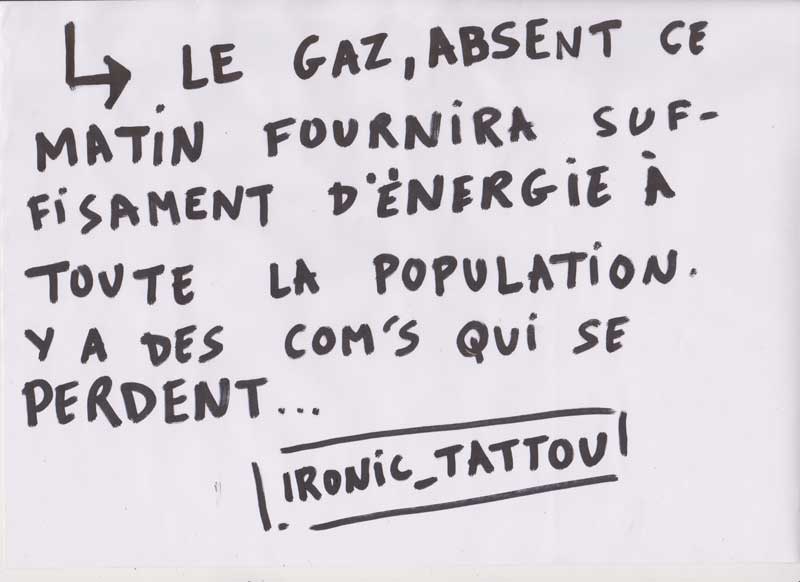 ↳ LE GAZ, ABSENT CE
MATiN FOURNiRA SUF-
FiSAMENT D'ËNERGiE À
TOUTE LA POPULATiON.
Y A DES COM'S QUi SE
PERDENT...
IRONiC_TATTOU